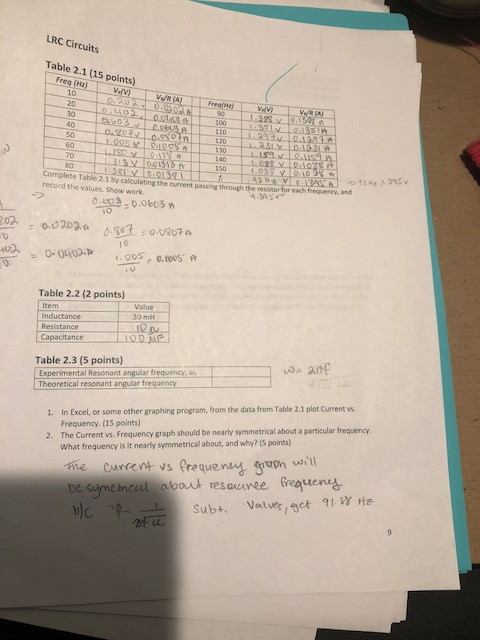 LRC Circuits
Table 2.1 (15 points)
Freq (Hz) V_R(V) V_R/R (A) Freq(Hz) V_R(V) V_R/R (A)
10 0.202 v 0.0202 A 90 1.388 v
20 0.402 0.0402 A 100 1.351 v 0.1351 A
30 0.603 v 0.0603 A 110 1.297 v 0.1297 A
40 0.807 v 0.0807 A 120 1.231 v 0.1231 A
50 1.005 v 0.1005 A 130 1.159 v 0.1159 A
60 140 1.088 v
70 1.313 v 150 1.038 v 0.1038 A
80 1.381 v 92 Hz v 0.1395 A
Complete Table 2.1 by calculating the current passing through the resistor for each frequency, and
record the values. Show work.
0.603 / 10 = 0.0603 A
= 0.0202 A
0.807 / 10 = 0.0807 A
= 0.0402 A
1.005 / 10 = 0.1005 A
Table 2.2 (2 points)
Item Value
Inductance 30 mH
Resistance 10 Ω
Capacitance 100 µF
Table 2.3 (5 points)
Experimental Resonant angular frequency, ωr
Theoretical resonant angular frequency
ω = 2πf
1. In Excel, or some other graphing program, from the data from Table 2.1 plot Current vs.
Frequency. (15 points)
2. The Current vs. Frequency graph should be nearly symmetrical about a particular frequency.
What frequency is it nearly symmetrical about, and why? (5 points)
The current vs frequency graph will
be symemcal about resonance frequency
b/c subt. Values, get 91.88 Hz
9